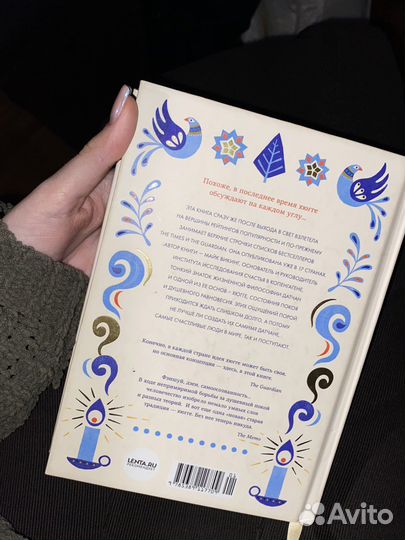 Похоже, в последнее время хюгге
обсуждают на каждом углу...
ЭТА КНИГА СРАЗУ ЖЕ ПОСЛЕ ВЫХОДА В СВЕТ ВЗЛЕТЕЛА
НА ВЕРШИНЫ РЕЙТИНГОВ ПОПУЛЯРНОСТИ И ПО-ПРЕЖНЕМУ
ЗАНИМАЕТ ВЕРХНИЕ СТРОЧКИ СПИСКОВ БЕСТСЕЛЛЕРОВ
THE TIMES И THE GUARDIAN. ОНА ОПУБЛИКОВАНА УЖЕ В 17 СТРАНАХ
АВТОР КНИГИ — МАЙК ВИКИНГ, ОСНОВАТЕЛЬ И РУКОВОДИТЕЛЬ
ИНСТИТУТА ИССЛЕДОВАНИЯ СЧАСТЬЯ В КОПЕНГАГЕНЕ,
ТОНКИЙ ЗНАТОК ЖИЗНЕННОЙ ФИЛОСОФИИ ДАТЧАН
И ОДНОЙ ИЗ ЕЕ ОСНОВ - ХЮГГЕ, СОСТОЯНИЯ ПОКОЯ
И ДУШЕВНОГО РАВНОВЕСИЯ. ЭТИХ ОЩУЩЕНИЙ ПОРОЙ
ПРИХОДИТСЯ ЖДАТЬ СЛИШКОМ ДОЛГО, А ПОТОМУ
НЕ ЛУЧШЕ ЛИ СОЗДАТЬ ИХ САМИМ? ДАТЧАНЕ,
САМЫЕ СЧАСТЛИВЫЕ ЛЮДИ В МИРЕ, ТАК И ПОСТУПАЮТ.
Конечно, в каждой стране идея хюгге может быть своя,
но основная концепция — здесь, в этой книге.
The Guardian
Фэншуй, дзен, самоосознанность...
В ходе непримиримой борьбы за душевный покой
человечество изобрело немало умных слов
и разных теорий. И вот еще одна «новая» старая
традиция — хюгге. Без нее теперь никуда.
The Memo
LENTA.RU
РЕКОМЕНДУЕТ
Avito